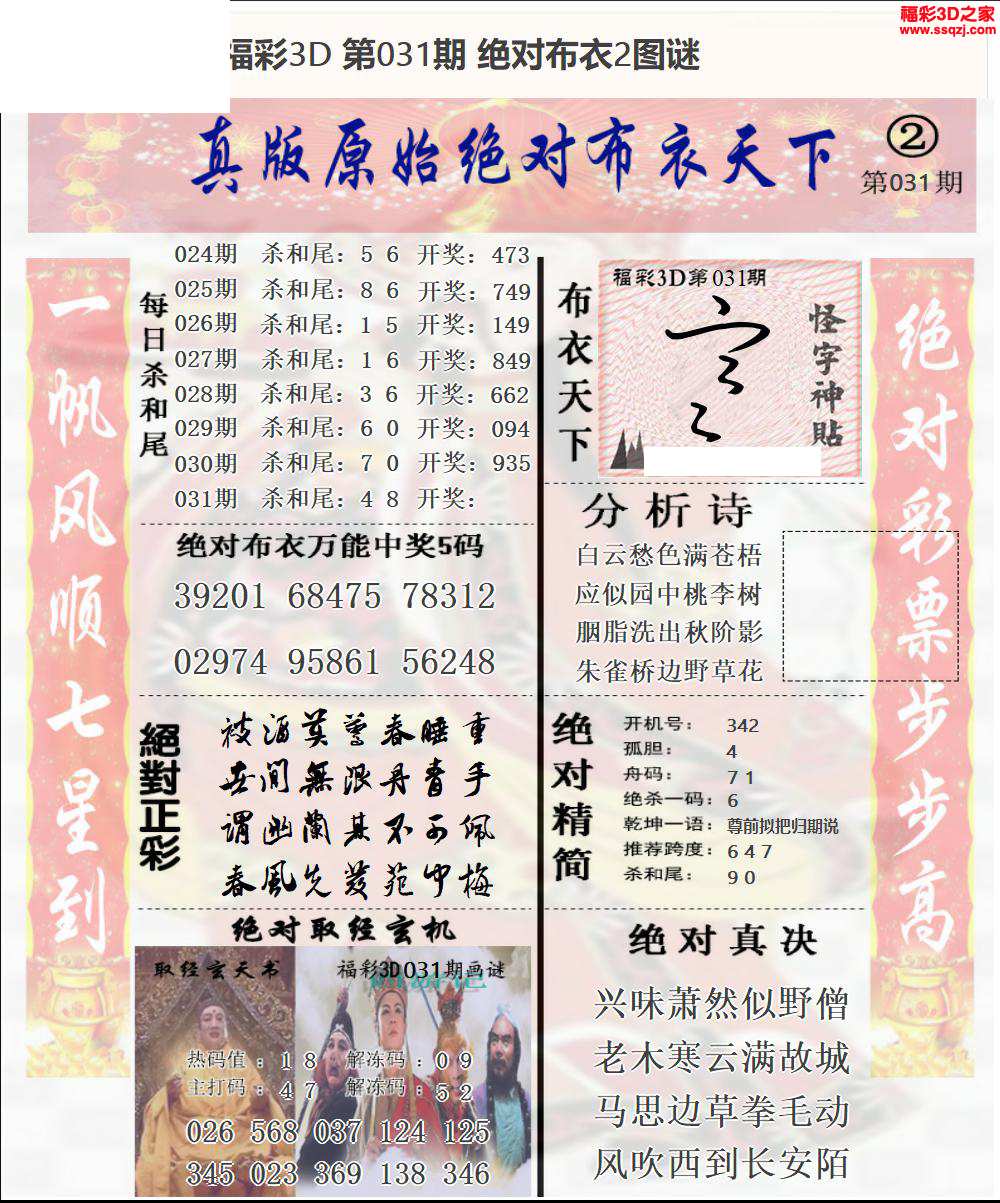 福彩3D之家
www.ssqzj.com
福彩3D 第031期 绝对布衣2图谜
真版原始绝对布衣天下
②
第031期
一帆风顺七星到
每日杀和尾
024期 杀和尾：5 6 开奖：473
025期 杀和尾：8 6 开奖：749
026期 杀和尾：1 5 开奖：149
027期 杀和尾：1 6 开奖：849
028期 杀和尾：3 6 开奖：662
029期 杀和尾：6 0 开奖：094
030期 杀和尾：7 0 开奖：935
031期 杀和尾：4 8 开奖：
绝对布衣万能中奖5码
39201 68475 78312
02974 95861 56248
絕對正彩
被酒莫驚春睡重
世间無限丹青手
谓幽蘭其不可佩
春風先發苑中梅
绝对取经玄机
取经玄天书
福彩3D031期画谜
热码值：1 8 解冻码：0 9
主打码：4 7 解冻码：5 2
026 568 037 124 125
345 023 369 138 346
布衣天下
福彩3D第031期
怪字神貼
分析诗
白云愁色满苍梧
应似园中桃李树
胭脂洗出秋阶影
朱雀桥边野草花
绝对精简
开机号：342
孤胆：4
舟码：7 1
绝杀一码：6
乾坤一语：尊前拟把归期说
推荐跨度：6 4 7
杀和尾：9 0
绝对真决
兴味萧然似野僧
老木寒云满故城
马思边草拳毛动
风吹西到长安陌
绝对彩票步步高